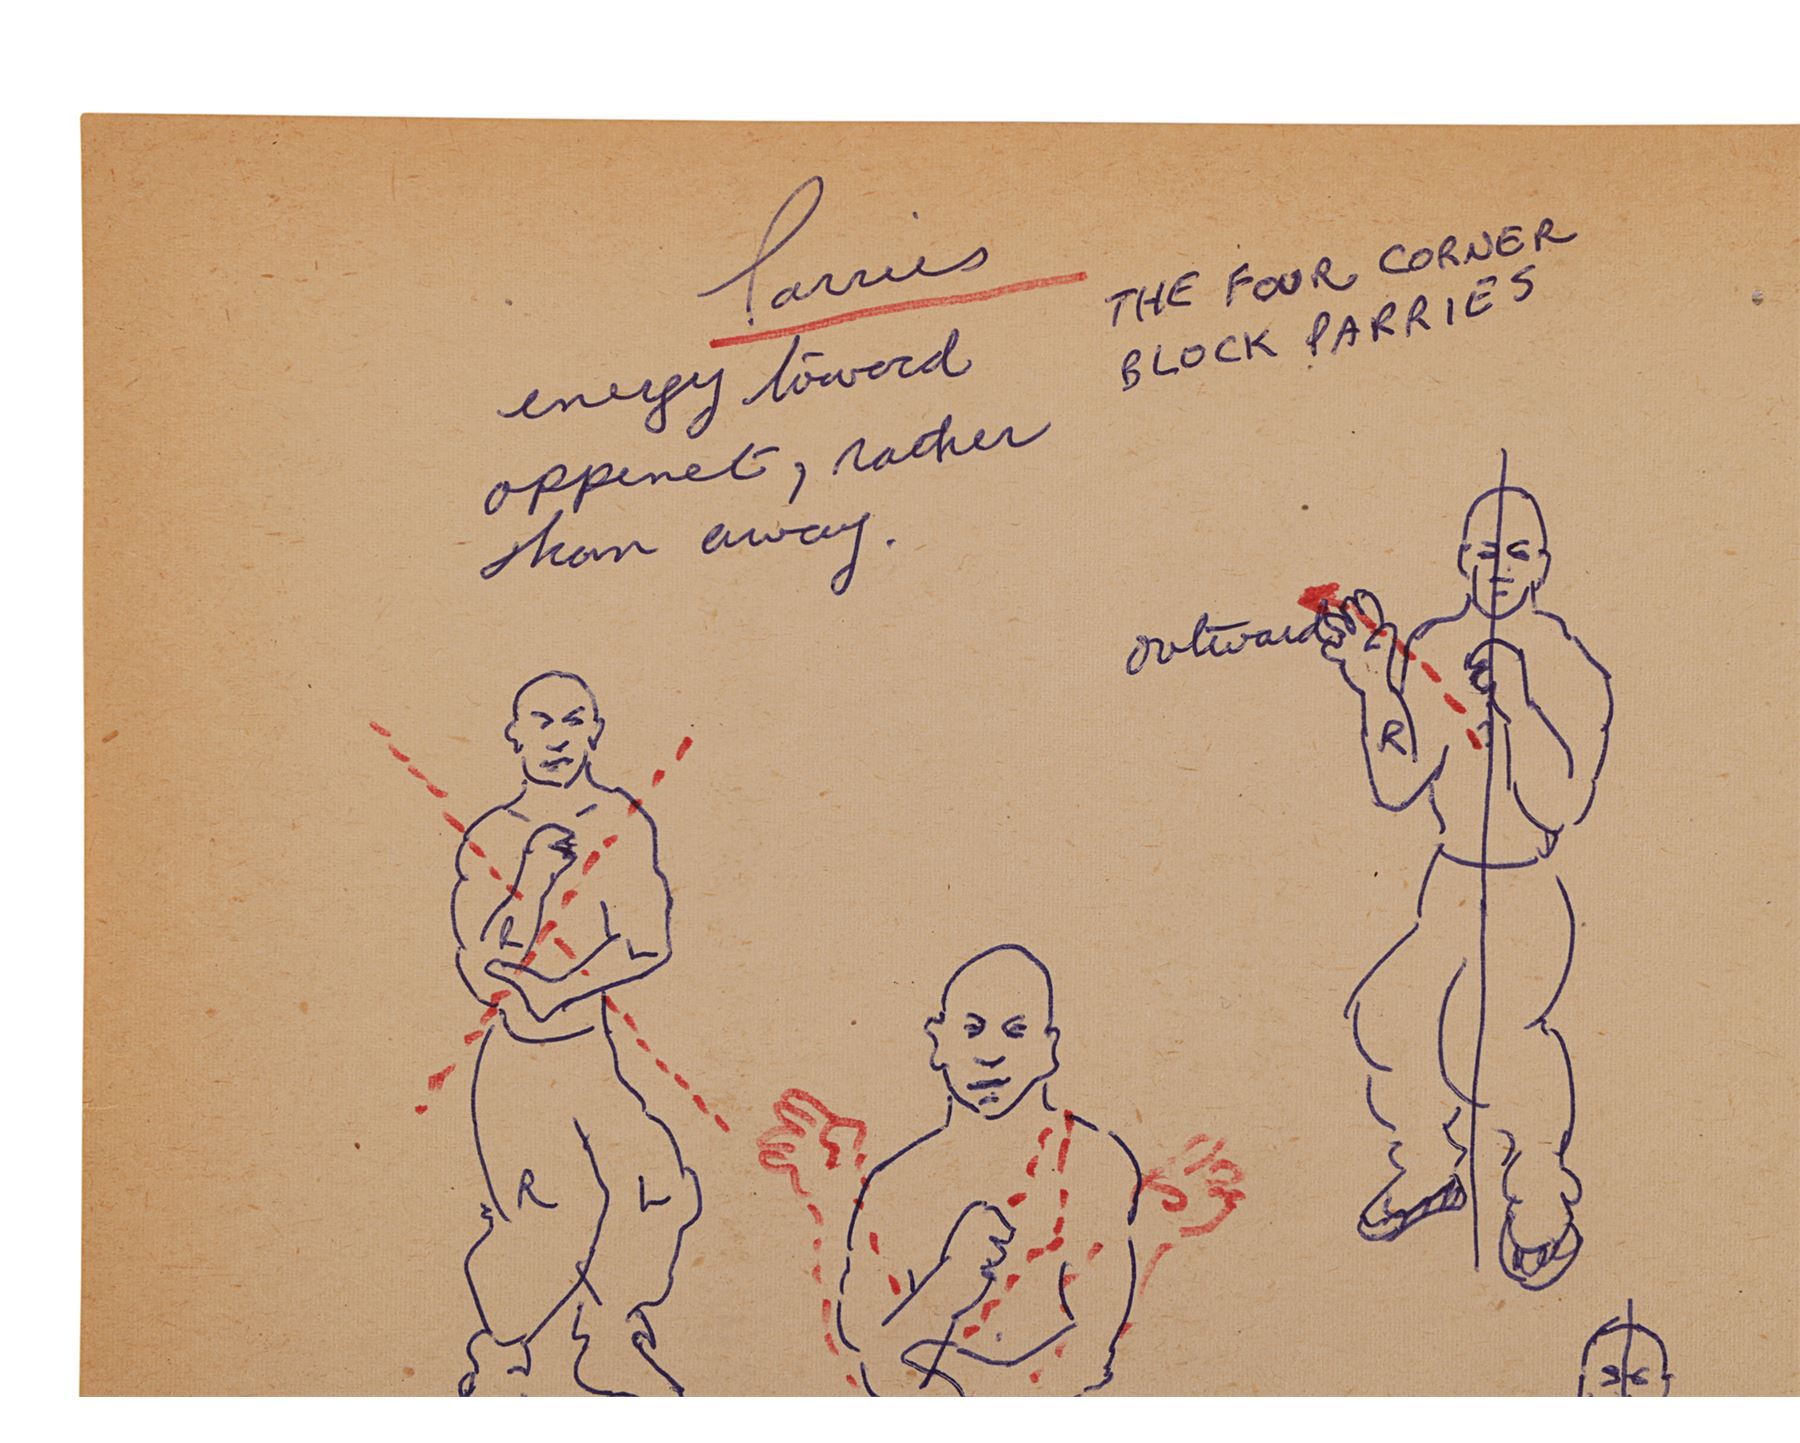 Parries
energy toword
oppenet, rather
than away.
THE FOUR CORNER
BLOCK PARRIES
outward
R
R
L
R
L